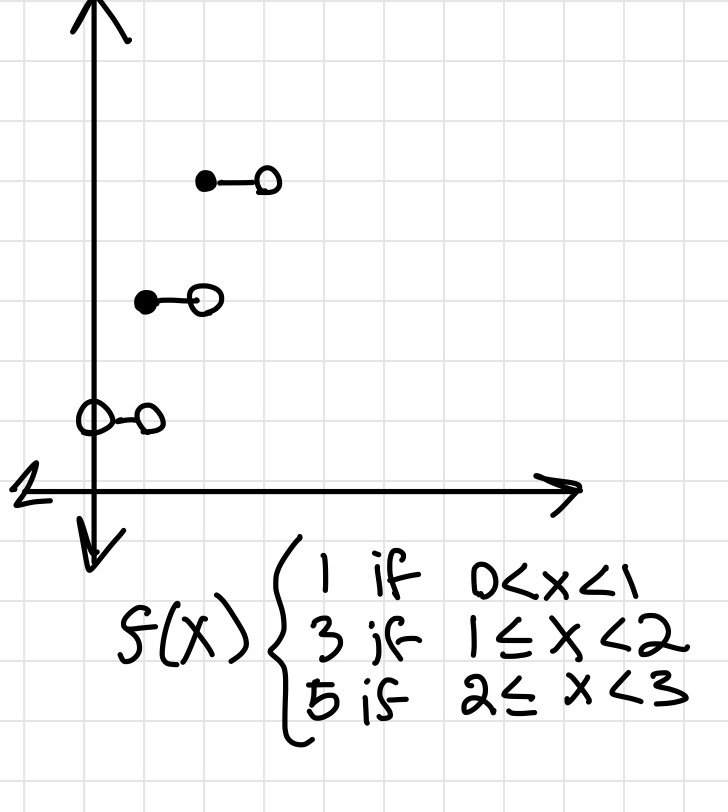 f(x) { 1 if 0<x<1
3 if 1≤x<2
5 if 2≤x<3